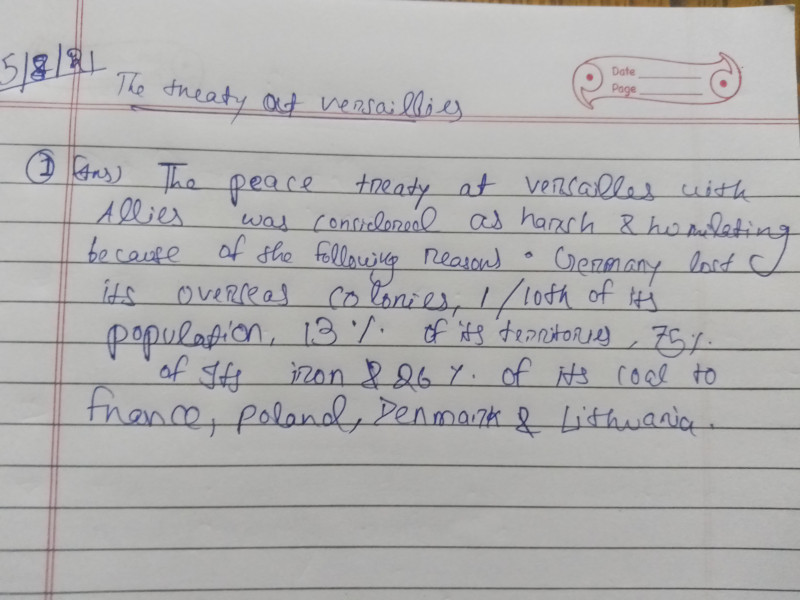 5/8/21
Date
Page
The treaty at versaillies
1 (Ans) The peace treaty at versailles with
Allies was considered as harsh & homileting
because of the following reasons • Germany lost
its overseas colonies, 1/10th of its
population, 13 % of its territories, 75 %
of Its iron & 26 %. of its coal to
france, poland, Denmark & Lithuania.